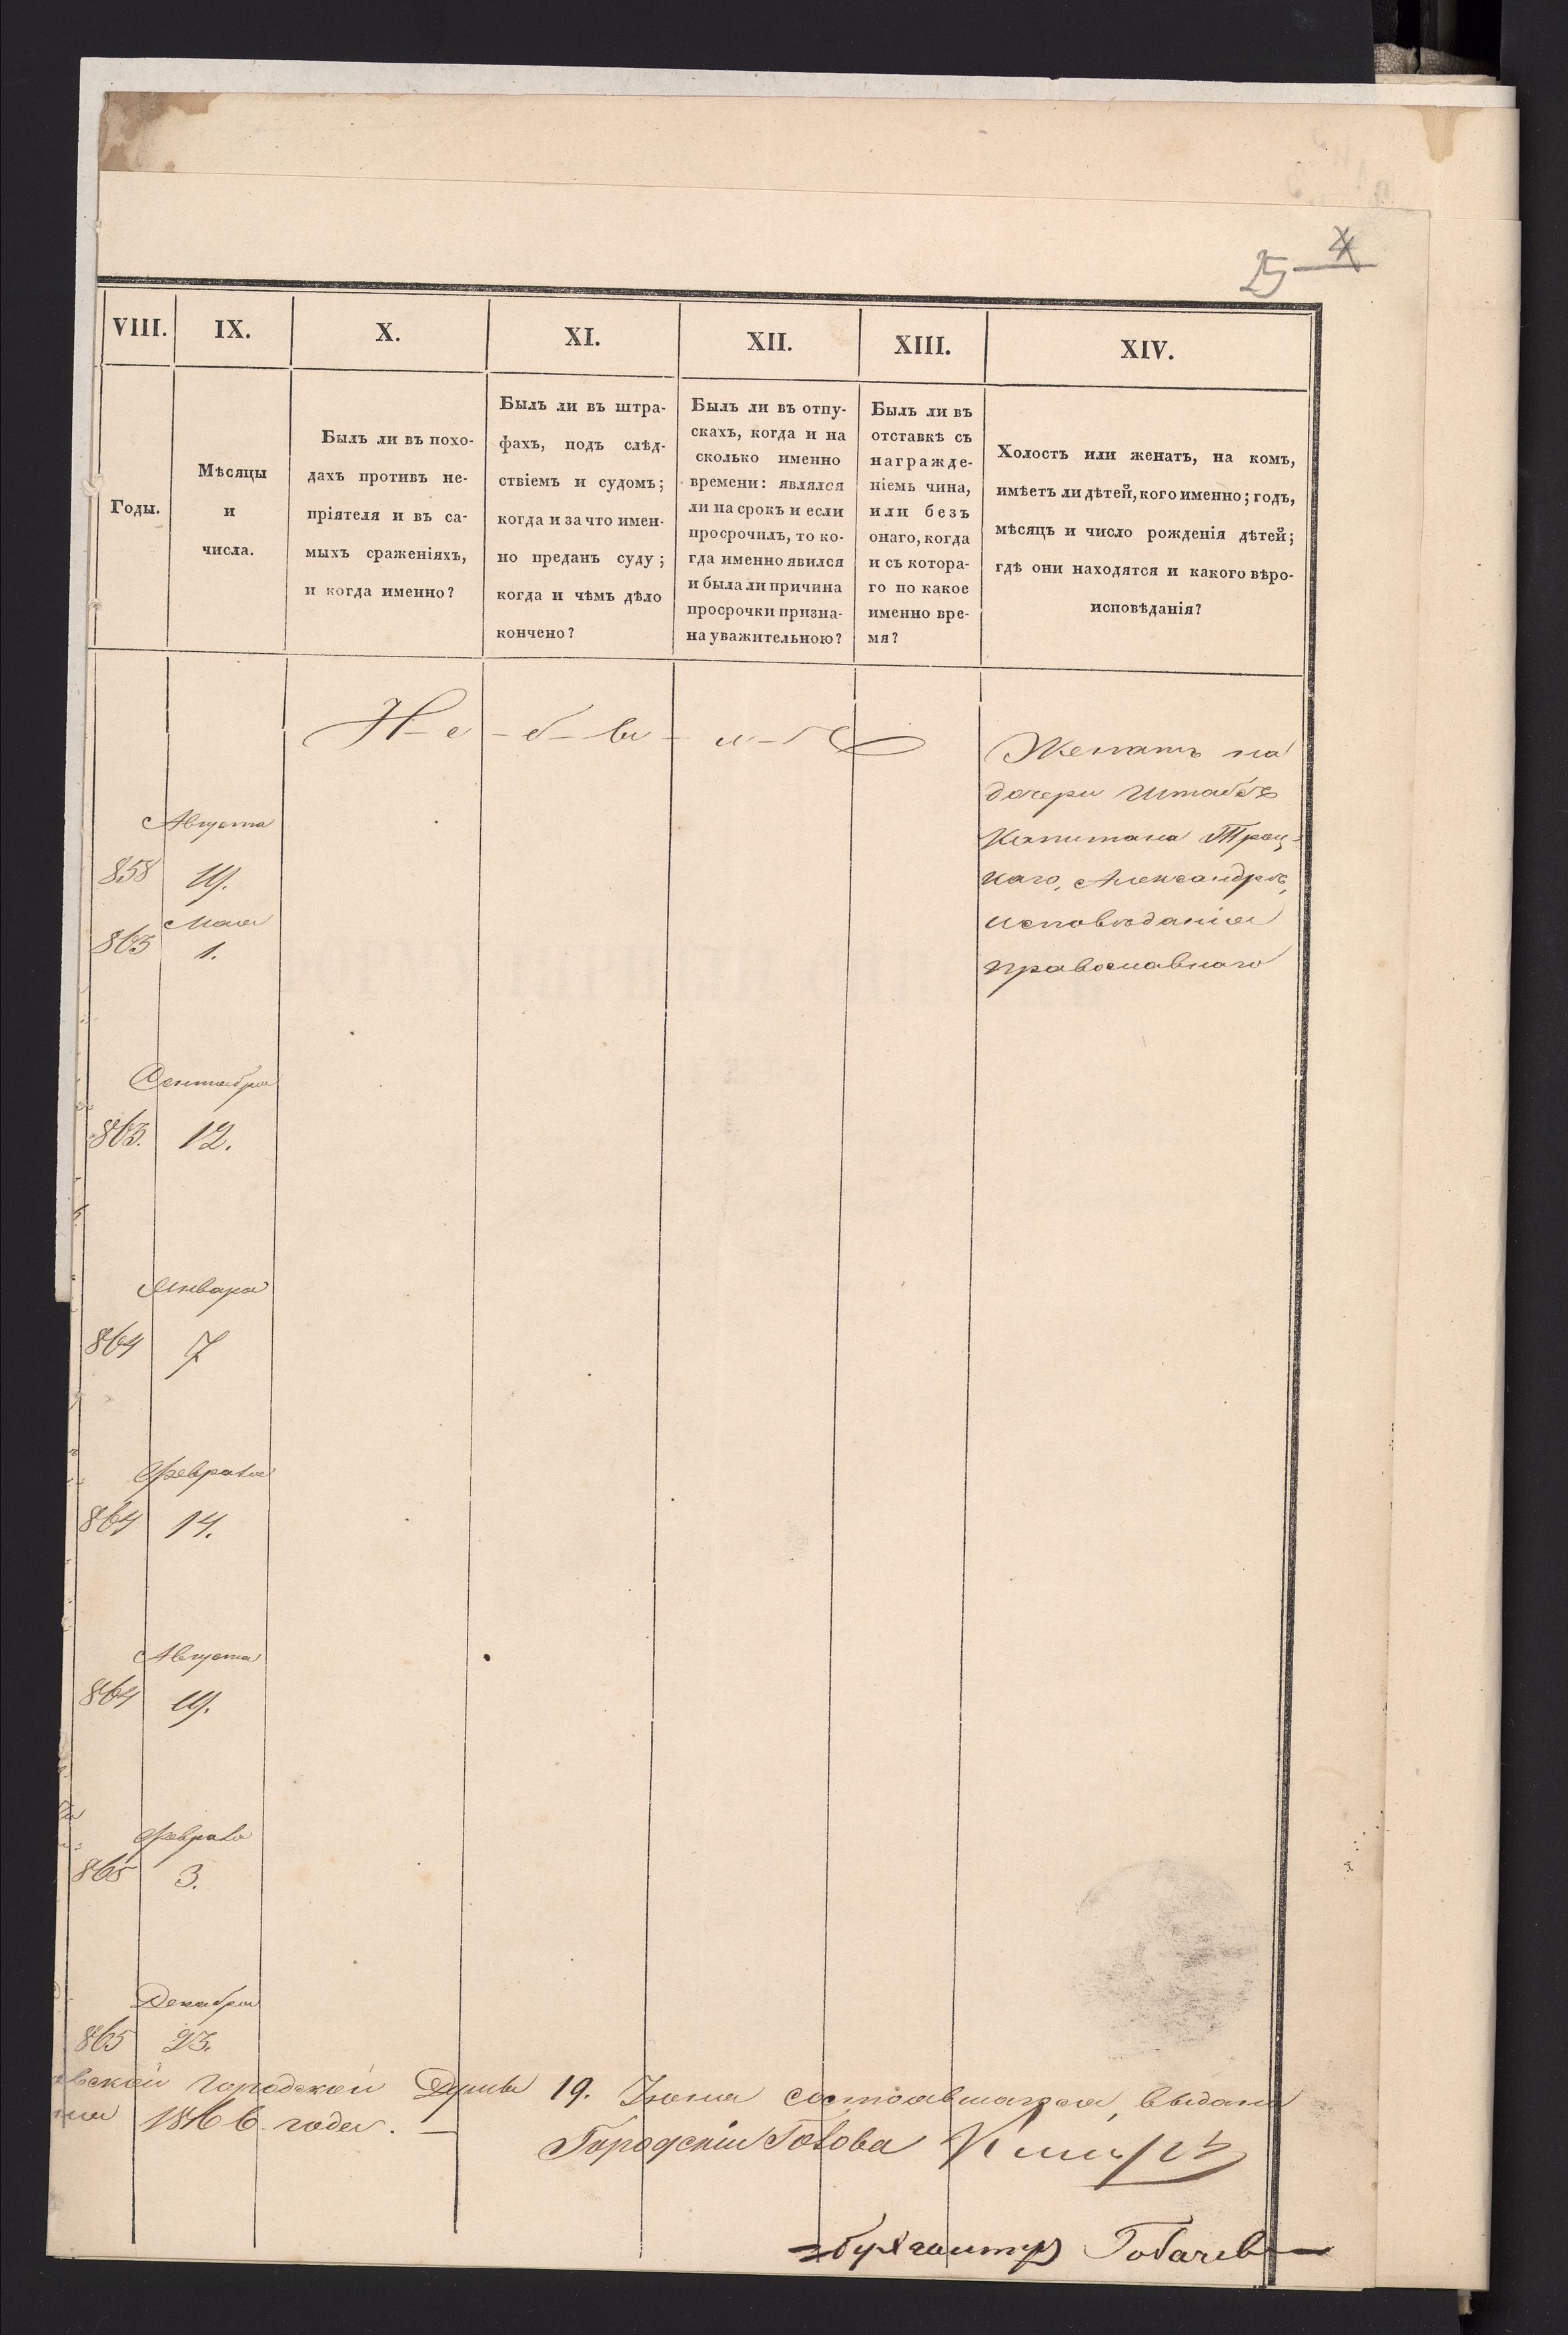 4
25
VIII. IX. X. XI. XII. XIII. XIV.
Годы.
Мѣсяцы
и
числа.
Былъ ли въ похо-
дахъ противъ не-
пріятеля и въ са-
мыхъ сраженіяхъ,
и когда именно?
Былъ ли въ штра-
фахъ, подъ слѣд-
ствіемъ и судомъ;
когда и за что имен-
но преданъ суду;
когда и чѣмъ дѣло
кончено?
Былъ ли въ отпу-
скахъ, когда и на
сколько именно
времени: являлся
ли на срокъ и если
просрочилъ, то ко-
гда именно явился
и была ли причина
просрочки призна-
на уважительною?
Былъ ли въ
отставкѣ съ
награжде-
ніемъ чина,
или безъ
онаго, когда
и съ котора-
го по какое
именно вре-
мя?
Холостъ или женатъ, на комъ,
имѣетъ ли дѣтей, кого именно; годъ,
мѣсяцъ и число рожденія дѣтей;
гдѣ они находятся и какого вѣро-
исповѣданія?
Не-б-ы-л-ъ
Женатъ на
дочери Штабсъ
Капитана Троц-
каго, Александрѣ,
исповѣданія
православнаго
Августа
858 19.
Мая
863 1.
Сентября
863. 12.
Января
864 7
Февраля
864 14.
Августа
864 19.
Февраля
865 3.
Декабря
865 23.
вской городской Думы 19. Іюня состоявшагося, выданъ
1866 года. —
Городскій Голова
Бухгалтеръ